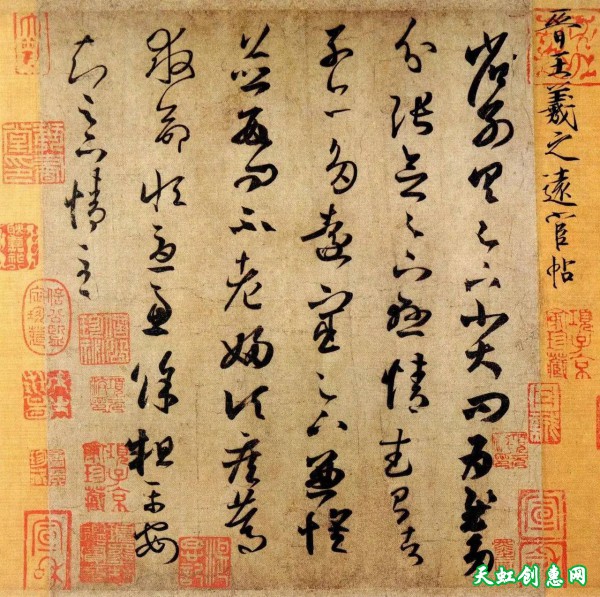 晉王羲之遠宦帖
省別具足下小大問為慰多
分張念足下懸情武昌諸
子亦多遠宦足下兼懷
並數問不老婦頃疾篤
救命恒憂慮餘粗平安
知足下情至
項子京家珍藏
宣和
天虹创惠网